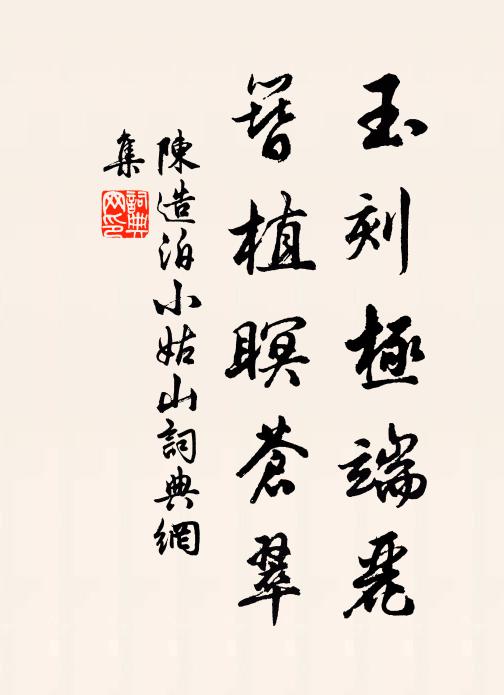 玉刻極端麗
簪植瞑蒼翠
陳造泊小姑山詞典網
集
詞典
网印